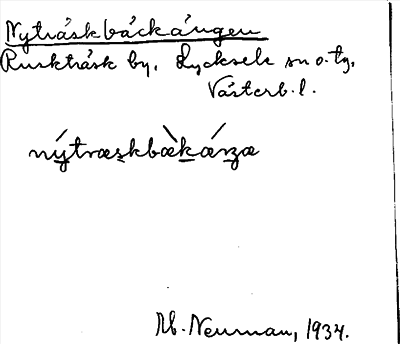 Nyträskbäckängen
Ruskträsk by, Lycksele sn o. tg,
Västerb. l.
nýtræskbæ̀kǽnza
M. Neuman, 1934.